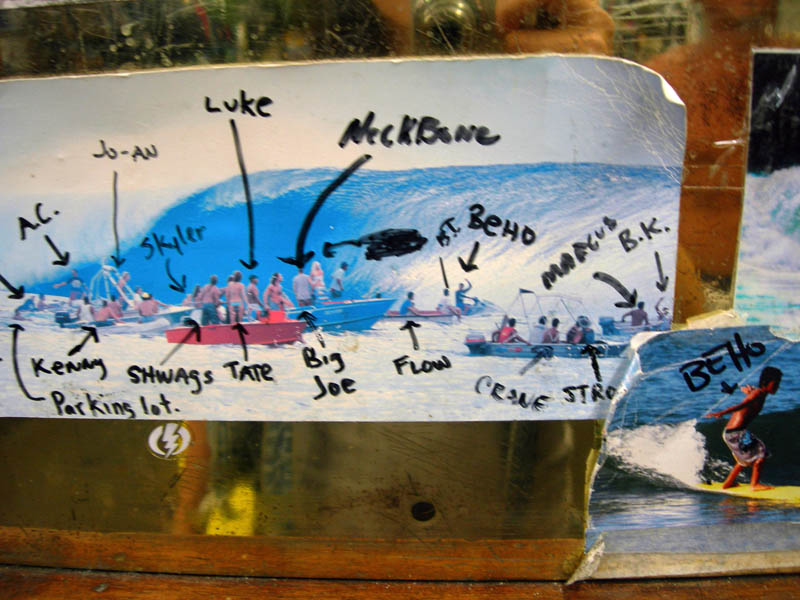 Luke
NeckBone
JO-AN
A.C.
Skyler
BEHO
MARCUS
B.K.
KENNY
SHWAGS
TATE
Big
Joe
FLOW
CRANE
Parking lot.
BEHO